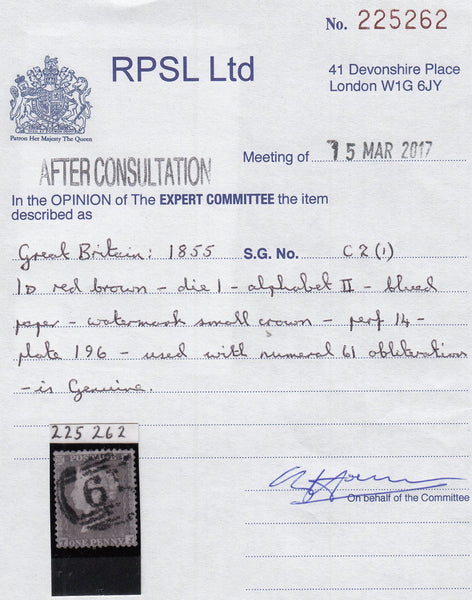 No. 225262
RPSL Ltd
41 Devonshire Place
London W1G 6JY
Patron Her Majesty The Queen
AFTER CONSULTATION
Meeting of 15 MAR 2017
In the OPINION of The EXPERT COMMITTEE the item
described as
Great Britain: 1855 S.G. No. C2(1)
1D red brown - die I - alphabet II - blued
paper - watermark small crown - perf 14 -
plate 196 - used with numeral 61 obliteration
- is Genuine.
225 262
POSTAGE
6
ONE PENNY
On behalf of the Committee